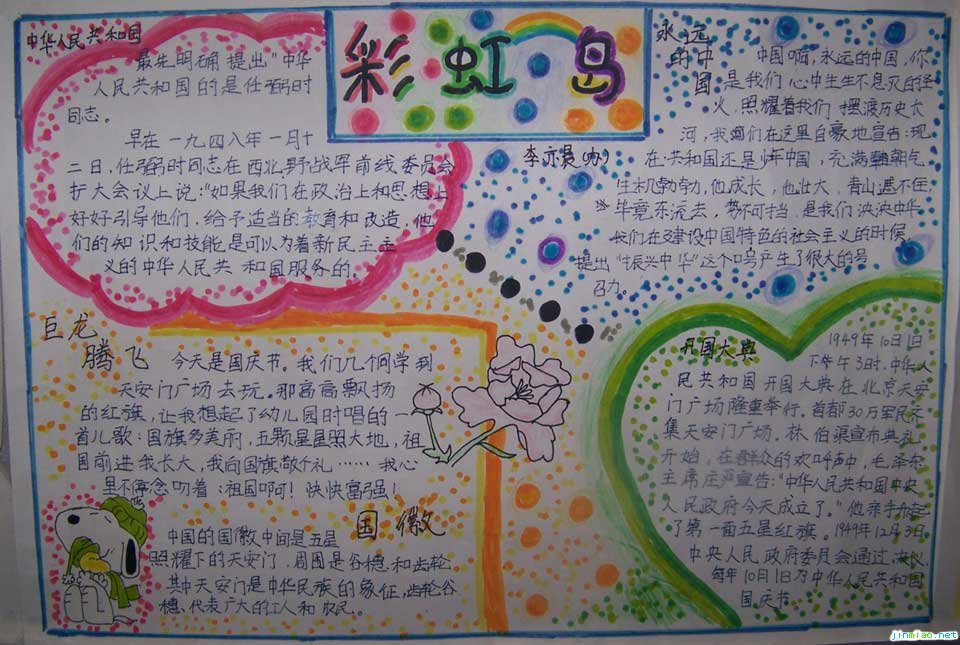 彩虹岛
李亦晨(办)
中华人民共和国
最先明确提出"中华
人民共和国的是任弼时
同志。
早在一九四八年一月十
二日,任弼时同志在西北野战军前线委员会
扩大会议上说:"如果我们在政治上和思想上
好好引导他们,给予适当的教育和改造,他
们的知识和技能是可以为着新民主主
义的中华人民共和国服务的
永远
的中
国
中国嗬,永远的中国,你
是我们心中生生不息灭的
火,照耀着我们摆渡历史长
河,我们在这里自豪地宣告:现
在共和国还是少年中国,充满朝气
生机勃勃,他成长,他壮大,青山遮不住,
毕竟东流去,势不可挡,是我们泱泱中华
我们在建设中国特色的社会主义的时候
提出"振兴中华"这个口号产生了很大的号
召力。
巨龙
腾飞
今天是国庆节。我们几个同学到
天安门广场去玩。那高高飘扬
的红旗,让我想起了幼儿园时唱的一
首儿歌:国旗多美丽,五颗星星照大地,祖
国前进我长大,我向国旗敬个礼……我心
里不停念叨着:祖国啊!快快富强!
开国大典
1949年10日1日
下午3时,中华人
民共和国开国大典在北京天安
门广场隆重举行。首都30万军民齐
集天安门广场。林伯渠宣布典礼
开始,在群众的欢呼声中,毛泽东
主席庄严宣告:"中华人民共和国中央
人民政府今天成立了。"他亲手升起
了第一面五星红旗。1949年12月3日,
中央人民政府委员会通过决议,
每年10月1日为中华人民共和国
国庆节
国徽
中国的国徽中间是五星
照耀下的天安门,周围是谷穗和齿轮
其中天安门是中华民族的象征,齿轮谷
穗、代表广大的工人和农民。
jinmiao.net